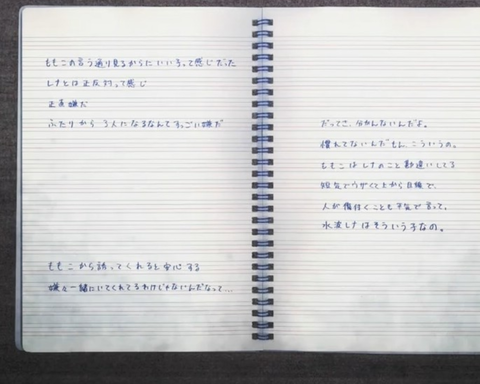 ももこの言う通り見るからにいい子って感じだった
レナとは正反対って感じ
正直嫌だ
ふたりから3人になるなんてすっごい嫌だ
ももこから誘ってくれると安心する
嫌々一緒にいてくれてるわけじゃないんだなって…
だってさ、分かんないんだよ。
慣れてないんだもん、こういうの。
ももこはレナのこと勘違いしてる
短気でウザくて上から目線で、
人が傷付くことも平気で言って、
水波レナはそういう子なの。